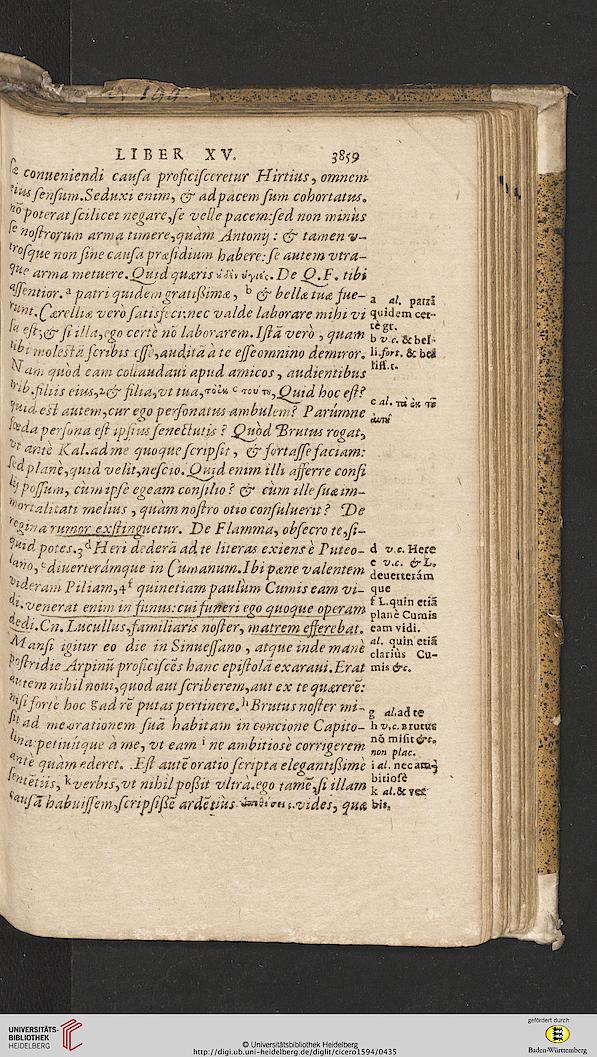 LIBER XV. 3859
conueniendi causa proficisceretur Hirtius, omnem
eius sensum. Seduxi enim, & ad pacem sum cohortatus.
nō poterat scilicet negare, se velle pacem: sed non minùs
se nostrorum arma timere, quàm Antonij: & tamen v-
trosque non sine causa præsidium habere: se autem vtra-
que arma metuere. Quid quæris De Q.F. tibi
assentior. a patri quidem gratissimæ, b & bellæ tuæ fue-
runt. Cærelliæ verò satisfeci: nec valde laborare mihi vi
sa est; & si illa, ego certè nō laborarem. Istā verò, quam
tibi molestā scribis esse, auditā à te esse omnino demiror.
Nam quòd eam collaudaui apud amicos, audientibus
trib. filiis eius, 2 & filia, vt tua, Quid hoc est?
quid est autem, cur ego personatus ambulem? Parùmne
fœda persona est ipsius senectutis? Quòd Brutus rogat,
vt antè Kal. ad me quoque scripsit, & fortasse faciam:
sed planè, quid velit, nescio. Quid enim illi afferre consi
lij possum, cùm ipse egeam consilio? & cùm ille suæ im-
mortalitati melius, quàm nostro otio consuluerit? De
regina rumor exstinguetur. De Flamma, obsecro te, si-
quid potes. 3 d Heri dederā ad te literas exiens è Puteo-
lano, e diuerterámque in Cumanum. Ibi pæne valentem
videram Piliam, 4 f quinetiam paulùm Cumis eam vi-
di. venerat enim in funus: cui funeri ego quoque operam
dedi. Cn. Lucullus, familiaris noster, matrem efferebat.
Mansi igitur eo die in Sinuessano, atque inde manè
postridie Arpinū proficiscēs hanc epistolā exaraui. Erat
autem nihil noui, quod aut scriberem, aut ex te quærerē:
nisi fortè hoc g ad rē putas pertinere. h Brutus noster mi-
sit ad me orationem suā habitam in concione Capito-
lina: petiuítque à me, vt eam i ne ambitiosè corrigerem
antè quàm ederet. Est autē oratio scripta elegantissimè
sentētiis, k verbis, vt nihil possit vltrà. ego tamē, si illam
causā habuissem, scripsissē ardētiùs vides, quæ
a al. patri
quidem cer-
tè gr.
b v.c. & bel-
li. fort. & bel
liss. c.
c al.
d v.c. Here
e v.c. & L.
deuerterám
que
f L. quin etiā
planè Cumis
eam vidi.
al. quin etiā
clariùs Cu-
mis &c.
g al. ad te
h v.c. Brutus
nō misit &c.
non plac.
i al. nec amq;
bitiosè
k al. & ver
bis,
UNIVERSITÄTS-
BIBLIOTHEK
HEIDELBERG
© Universitätsbibliothek Heidelberg
http://digi.ub.uni-heidelberg.de/diglit/cicero1594/0435
gefördert durch
Baden-Württemberg